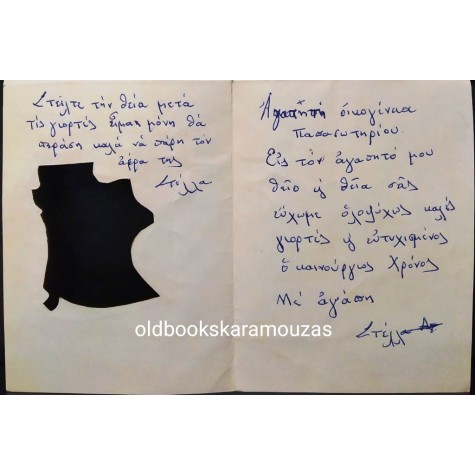 Στείλτε τὴν θεία μετά
τίς γιορτές εἶμαι μόνη θά
περάση καλά νά πάρη τόν
ἀέρα της
Στέλλα
Ἀγαπητή οἰκογένεια
Παπασωτηρίου.
Εἰς τόν ἀγαπητό μου
θεῖο ἡ θεία σᾶς
εὔχομε ὁλοψύχως καλές
γιορτές ἡ εὐτυχισμένος
ὁ καινούργιος Χρόνος
Μέ ἀγάπη
Στέλλα
oldbookskaramouzas